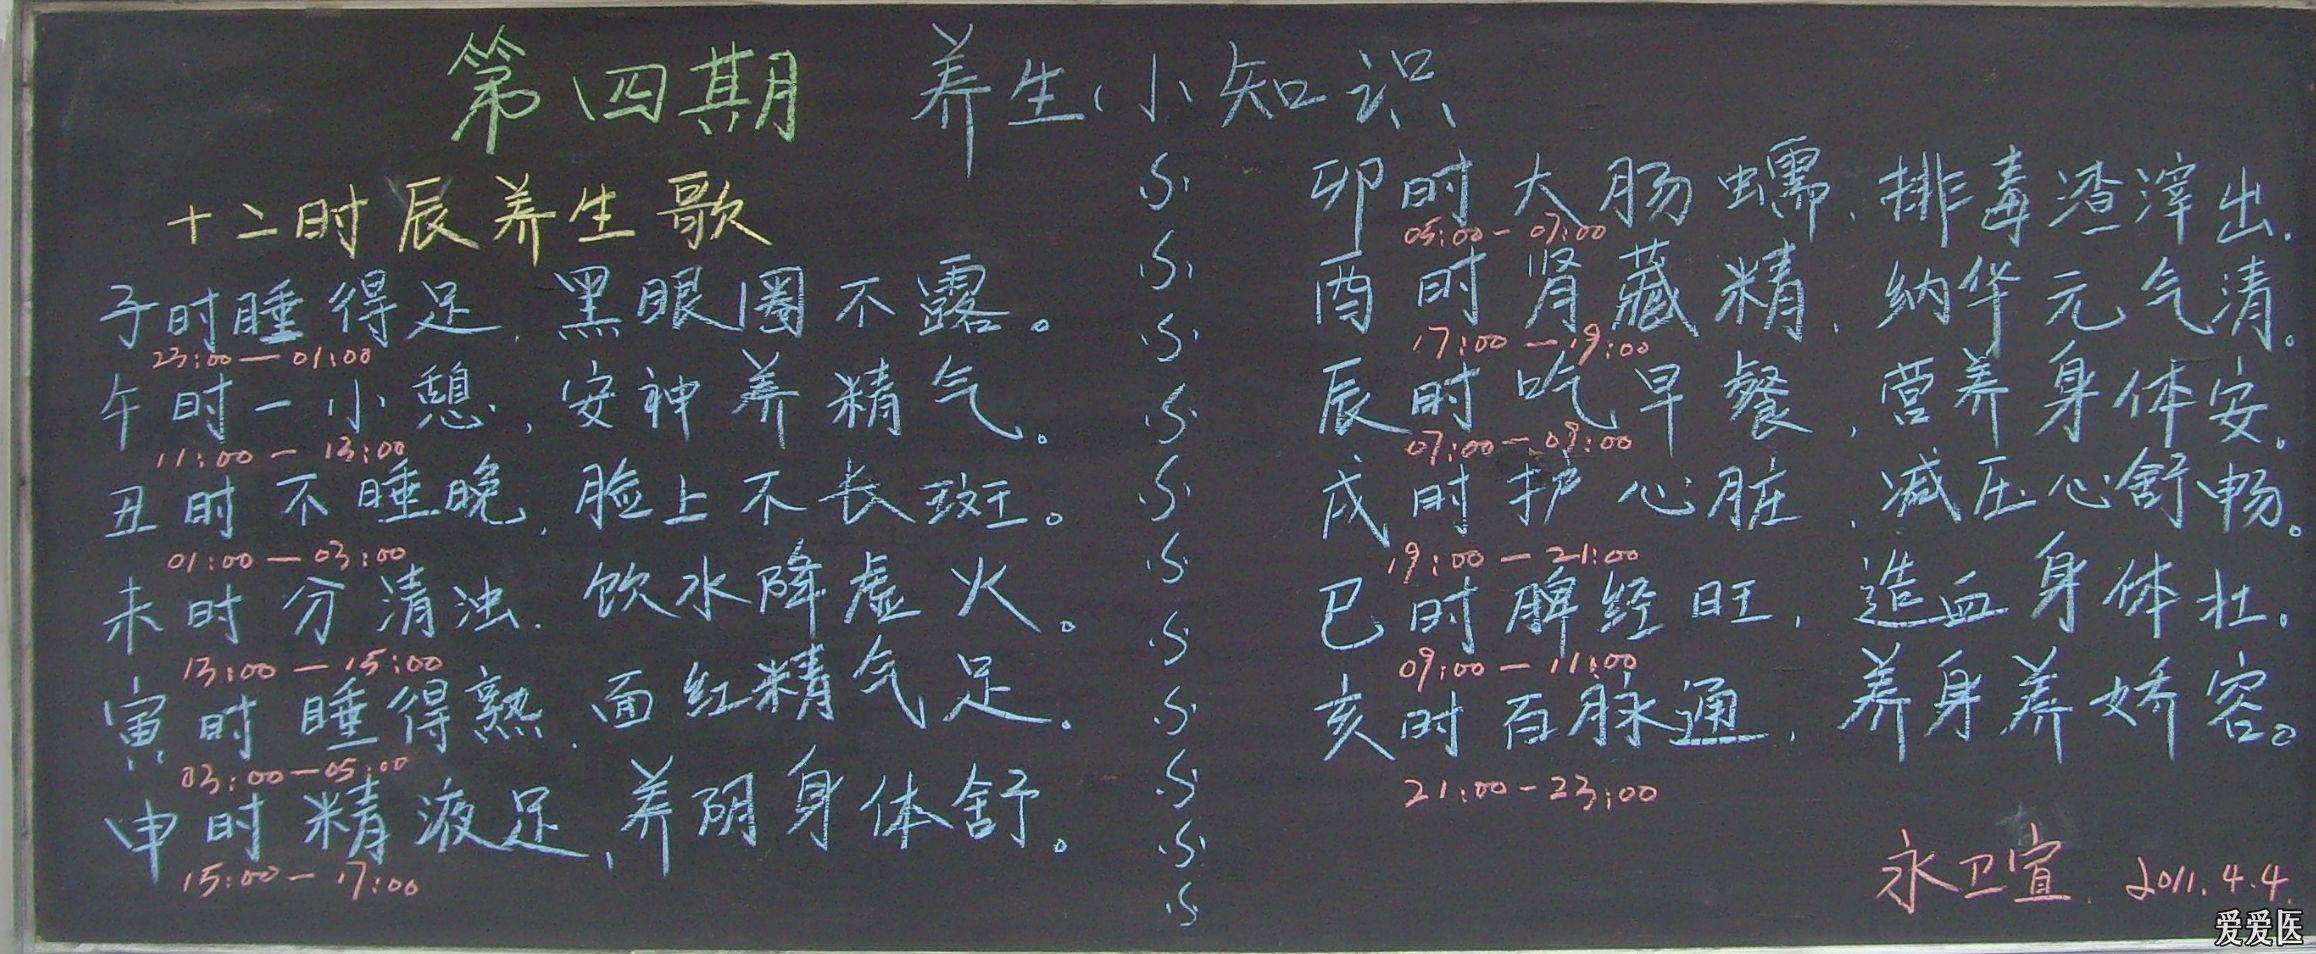 第四期 养生小知识
十二时辰养生歌
子时睡得足,黑眼圈不露。
23:00—01:00
午时一小憩,安神养精气。
11:00—13:00
丑时不睡晚,脸上不长斑。
01:00—03:00
未时分清浊.饮水降虚火。
13:00—15:00
寅时睡得熟,面红精气足.
03:00—05:00
申时精液足,养阴身体舒。
15:00—17:00
卯时大肠蠕,排毒渣滓出.
05:00—07:00
酉时肾藏精,纳华元气清。
17:00—19:00
辰时吃早餐,营养身体安。
07:00—09:00
戌时护心脏,减压心舒畅。
19:00—21:00
巳时脾经旺,造血身体壮.
09:00—11:00
亥时百脉通,养身养娇容。
21:00—23:00
永卫宣 2011.4.4.
爱爱医